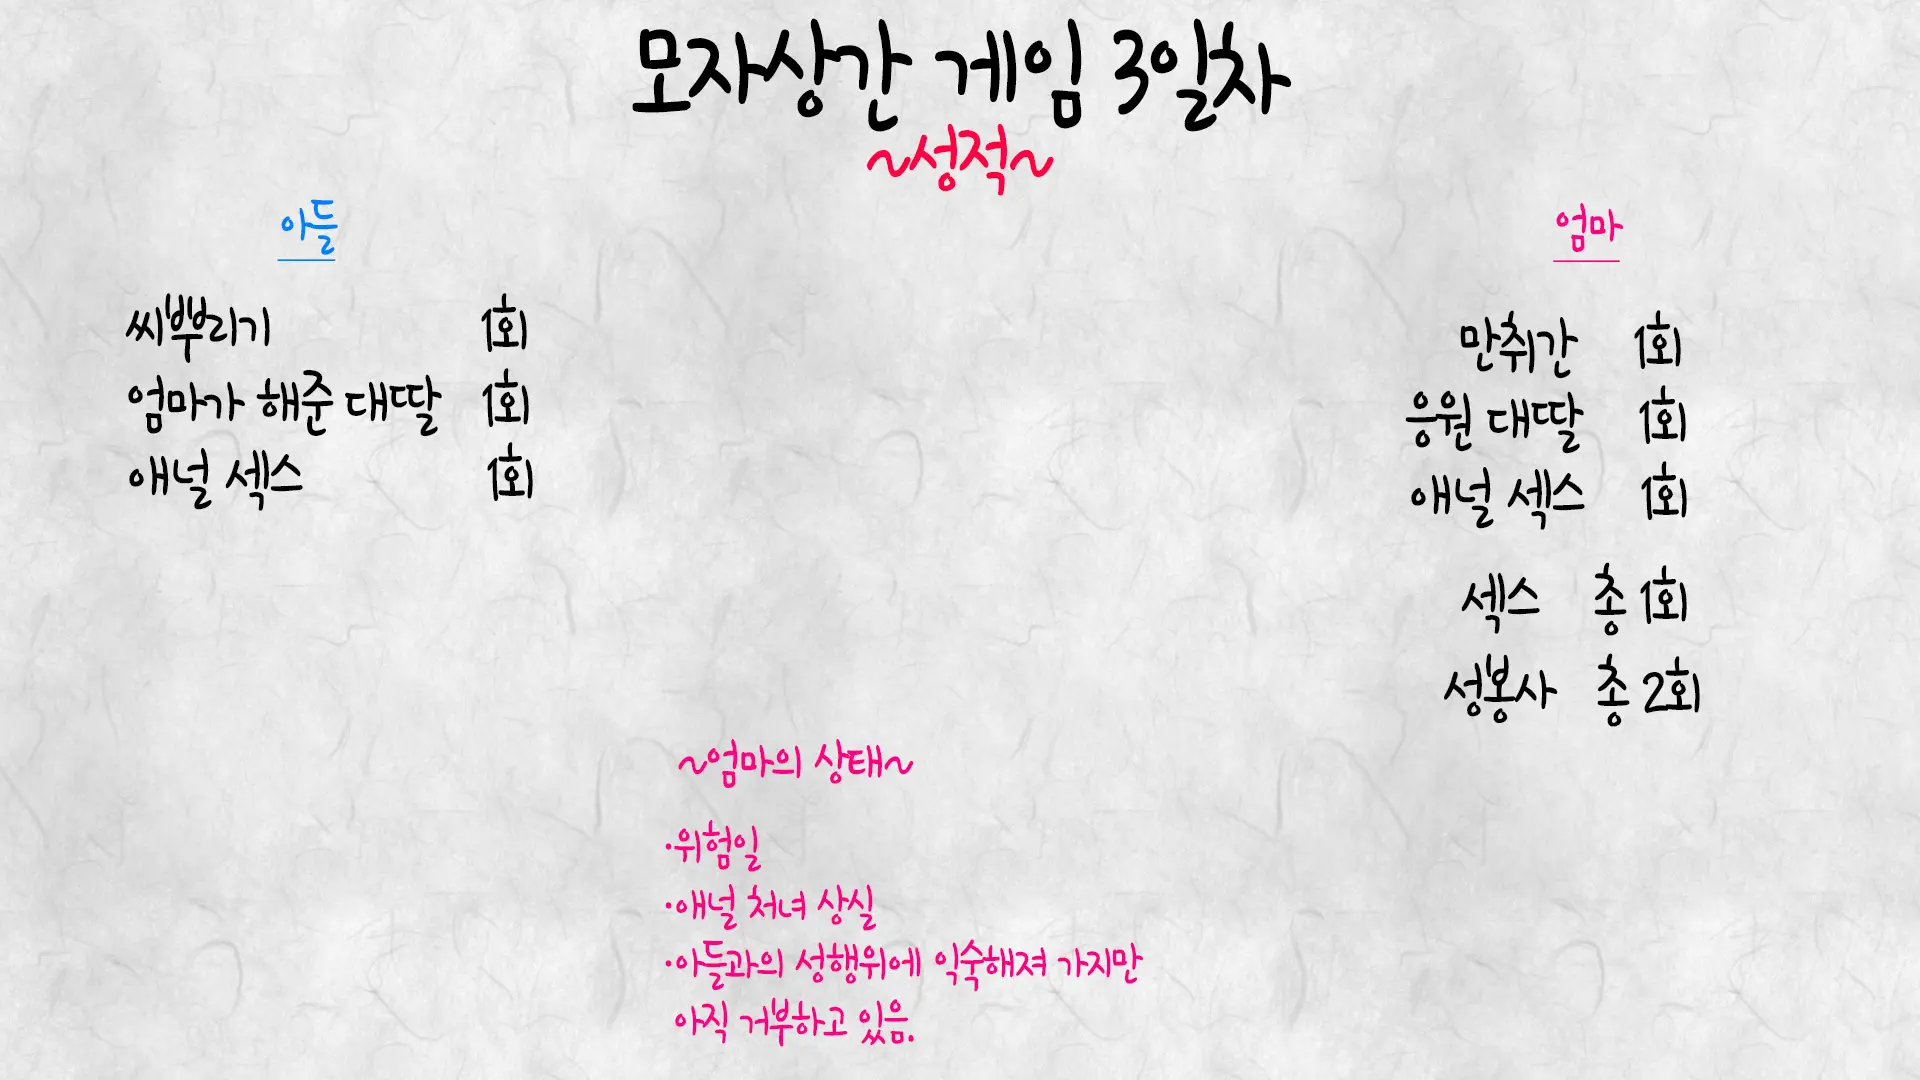 모자상간 게임 3일차
~성적~
아들
씨뿌리기 1회
엄마가 해준 대딸 1회
애널 섹스 1회
엄마
만취간 1회
응원 대딸 1회
애널 섹스 1회
섹스 총 1회
성봉사 총 2회
~엄마의 상태~
·위험일
·애널 처녀 상실
·아들과의 성행위에 익숙해져 가지만
아직 거부하고 있음.